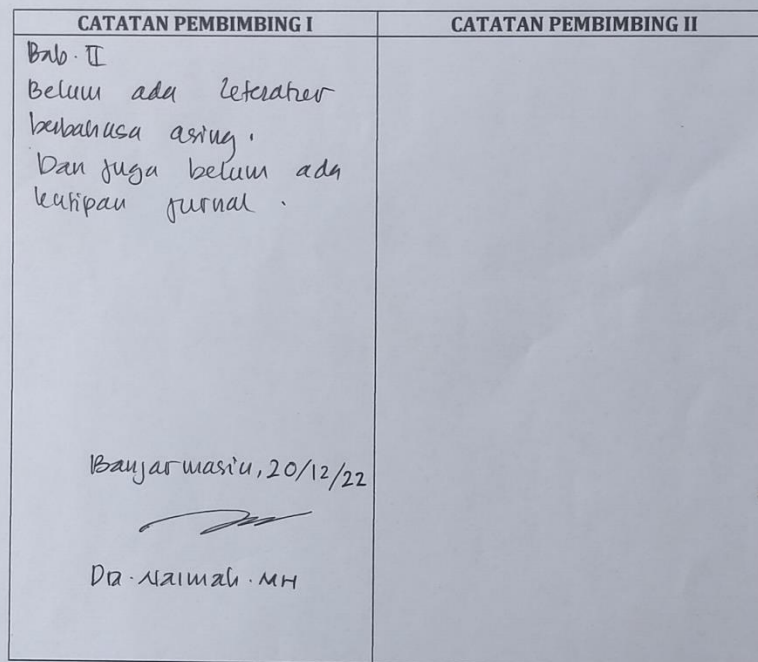 CATATAN PEMBIMBING I
CATATAN PEMBIMBING II
Bab. II
Belum ada leteratur
berbahasa asing.
Dan juga belum ada
kutipan jurnal.
Banjarmasin, 20/12/22
Dra. Naimah. MH